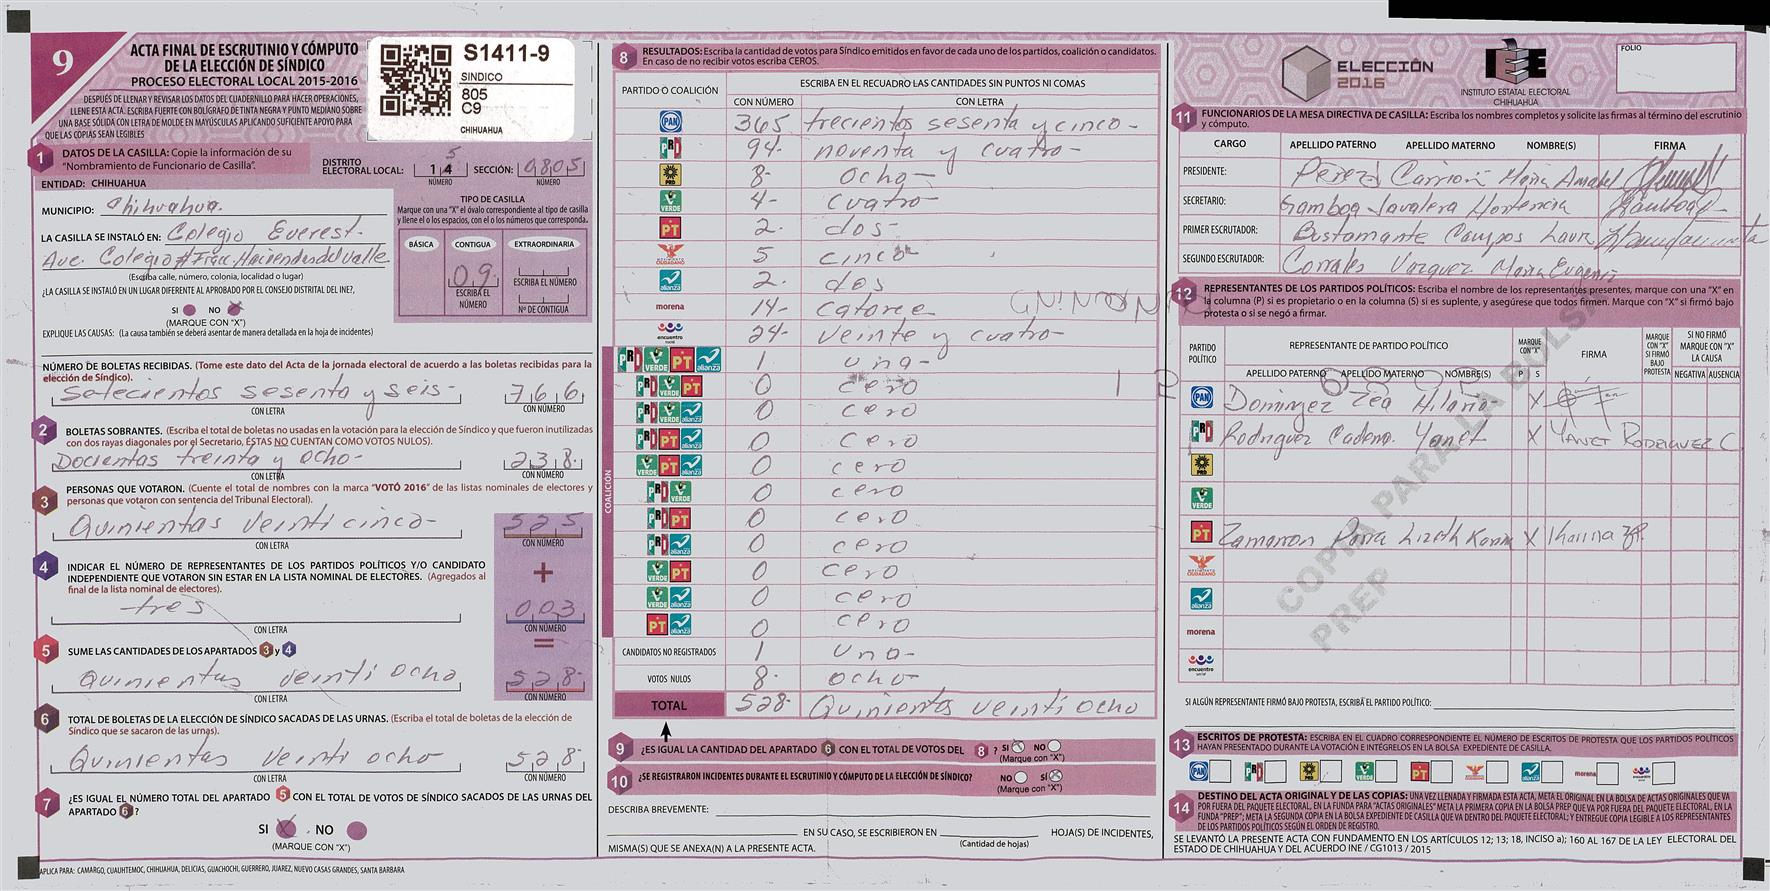 9
ACTA FINAL DE ESCRUTINIO Y CÓMPUTO
DE LA ELECCIÓN DE SÍNDICO
PROCESO ELECTORAL LOCAL 2015-2016
DESPUÉS DE LLENAR Y REVISAR LOS DATOS DEL CUADERNILLO PARA HACER OPERACIONES,
LLENE ESTA ACTA. ESCRIBA FUERTE CON BOLÍGRAFO DE TINTA NEGRA Y PUNTO MEDIANO SOBRE
UNA BASE SÓLIDA CON LETRA DE MOLDE EN MAYÚSCULAS APLICANDO SUFICIENTE APOYO PARA
QUE LAS COPIAS SEAN LEGIBLES
S1411-9
SINDICO
805
C9
CHIHUAHUA
1 DATOS DE LA CASILLA: Copie la información de su
"Nombramiento de Funcionario de Casilla".
DISTRITO
ELECTORAL LOCAL: 15 SECCIÓN: 0805
NÚMERO NÚMERO
ENTIDAD: CHIHUAHUA
MUNICIPIO: Chihuahua.
LA CASILLA SE INSTALÓ EN: Colegio Everest.
Ave. Colegio # Fracc. Haciendas del Valle
(Escriba calle, número, colonia, localidad o lugar)
¿LA CASILLA SE INSTALÓ EN UN LUGAR DIFERENTE AL APROBADO POR EL CONSEJO DISTRITAL DEL INE?,
SI NO X
(MARQUE CON "X")
EXPLIQUE LAS CAUSAS: (La causa también se deberá asentar de manera detallada en la hoja de incidentes)
TIPO DE CASILLA
Marque con una "X" el óvalo correspondiente al tipo de casilla
y llene el o los espacios, con el o los números que corresponda.
BÁSICA CONTIGUA EXTRAORDINARIA
09
ESCRIBA EL NÚMERO
ESCRIBA EL NÚMERO
Nº DE CONTIGUA
NÚMERO DE BOLETAS RECIBIDAS. (Tome este dato del Acta de la jornada electoral de acuerdo a las boletas recibidas para la
elección de Síndico).
Setecientos sesenta y seis- 766
CON LETRA CON NÚMERO
2 BOLETAS SOBRANTES. (Escriba el total de boletas no usadas en la votación para la elección de Síndico y que fueron inutilizadas
con dos rayas diagonales por el Secretario, ÉSTAS NO CUENTAN COMO VOTOS NULOS).
Docientas treinta y ocho- 238
CON LETRA CON NÚMERO
3 PERSONAS QUE VOTARON. (Cuente el total de nombres con la marca "VOTÓ 2016" de las listas nominales de electores y
personas que votaron con sentencia del Tribunal Electoral).
Quinientas veinti cinco- 525
CON LETRA CON NÚMERO
4 INDICAR EL NÚMERO DE REPRESENTANTES DE LOS PARTIDOS POLÍTICOS Y/O CANDIDATO
INDEPENDIENTE QUE VOTARON SIN ESTAR EN LA LISTA NOMINAL DE ELECTORES. (Agregados al
final de la lista nominal de electores).
+
tres 003
CON LETRA CON NÚMERO
=
5 SUME LAS CANTIDADES DE LOS APARTADOS 3 y 4
Quinientas veinti ocho 528
CON LETRA CON NÚMERO
6 TOTAL DE BOLETAS DE LA ELECCIÓN DE SÍNDICO SACADAS DE LAS URNAS. (Escriba el total de boletas de la elección de
Síndico que se sacaron de las urnas).
Quinientas veinti ocho 528
CON LETRA CON NÚMERO
7 ¿ES IGUAL EL NÚMERO TOTAL DEL APARTADO 5 CON EL TOTAL DE VOTOS DE SÍNDICO SACADOS DE LAS URNAS DEL
APARTADO 6?
SI X NO
(MARQUE CON "X")
APLICA PARA: CAMARGO, CUAUHTEMOC, CHIHUAHUA, DELICIAS, GUACHOCHI, GUERRERO, JUAREZ, NUEVO CASAS GRANDES, SANTA BARBARA
8 RESULTADOS: Escriba la cantidad de votos para Síndico emitidos en favor de cada uno de los partidos, coalición o candidatos.
En caso de no recibir votos escriba CEROS.
PARTIDO O COALICIÓN ESCRIBA EN EL RECUADRO LAS CANTIDADES SIN PUNTOS NI COMAS
CON NÚMERO CON LETRA
PAN 365 trecientos sesenta y cinco-
PRI 94- noventa y cuatro-
PRD 8- ocho-
VERDE 4- cuatro-
PT 2. dos-
MOVIMIENTO CIUDADANO 5 cinco
alianza 2. dos
morena 14- catorce
encuentro social 24- veinte y cuatro-
COALICIÓN
PRI VERDE PT alianza 1 una-
PRI VERDE PT 0 cero
PRI VERDE alianza 0 cero
PRI PT alianza 0 cero
VERDE PT alianza 0 cero
PRI VERDE 0 cero
PRI PT 0 cero
PRI alianza 0 cero
VERDE PT 0 cero
VERDE alianza 0 cero
PT alianza 0 cero
CANDIDATOS NO REGISTRADOS 1 una-
VOTOS NULOS 8- ocho-
TOTAL 528- Quinientos veinti ocho
9 ¿ES IGUAL LA CANTIDAD DEL APARTADO 6 CON EL TOTAL DE VOTOS DEL 8 ? SI X NO
(Marque con "X")
10 ¿SE REGISTRARON INCIDENTES DURANTE EL ESCRUTINIO Y CÓMPUTO DE LA ELECCIÓN DE SÍNDICO? NO SÍ X
(Marque con "X")
DESCRIBA BREVEMENTE:
EN SU CASO, SE ESCRIBIERON EN HOJA(S) DE INCIDENTES,
(Cantidad de hojas)
MISMA(S) QUE SE ANEXA(N) A LA PRESENTE ACTA.
ELECCIÓN
2016
IEE
INSTITUTO ESTATAL ELECTORAL
CHIHUAHUA
FOLIO
11 FUNCIONARIOS DE LA MESA DIRECTIVA DE CASILLA: Escriba los nombres completos y solicite las firmas al término del escrutinio
y cómputo.
CARGO APELLIDO PATERNO APELLIDO MATERNO NOMBRE(S) FIRMA
PRESIDENTE: Perez Carrion Maria Amabel
SECRETARIO: Gamboa Javalera Hortencia
PRIMER ESCRUTADOR: Bustamante Campos Laura
SEGUNDO ESCRUTADOR: Corrales Vazquez Maria Eugenia
12 REPRESENTANTES DE LOS PARTIDOS POLÍTICOS: Escriba el nombre de los representantes presentes, marque con una "X" en
la columna (P) si es propietario o en la columna (S) si es suplente, y asegúrese que todos firmen. Marque con "X" si firmó bajo
protesta o si se negó a firmar.
PARTIDO POLÍTICO REPRESENTANTE DE PARTIDO POLÍTICO MARQUE CON "X" FIRMA MARQUE CON "X" SI FIRMÓ BAJO PROTESTA SI NO FIRMÓ MARQUE CON "X" LA CAUSA
APELLIDO PATERNO APELLIDO MATERNO NOMBRE(S) P S NEGATIVA AUSENCIA
PAN Dominguez Zea Hilario X
PRI Rodriguez Cadena Yanet X YANET RODRIGUEZ C
PRD
VERDE
PT Zamarron Parra Lizeth Karina X Karina
MOVIMIENTO CIUDADANO
alianza
morena
encuentro social
COPIA PARA LA BOLSA
PREP
SI ALGÚN REPRESENTANTE FIRMÓ BAJO PROTESTA, ESCRIBA EL PARTIDO POLÍTICO:
13 ESCRITOS DE PROTESTA: ESCRIBA EN EL CUADRO CORRESPONDIENTE EL NÚMERO DE ESCRITOS DE PROTESTA QUE LOS PARTIDOS POLÍTICOS
HAYAN PRESENTADO DURANTE LA VOTACIÓN E INTÉGRELOS EN LA BOLSA EXPEDIENTE DE CASILLA.
PAN PRI PRD VERDE PT MOVIMIENTO CIUDADANO alianza morena encuentro social
14 DESTINO DEL ACTA ORIGINAL Y DE LAS COPIAS: UNA VEZ LLENADA Y FIRMADA ESTA ACTA, META EL ORIGINAL EN LA BOLSA DE ACTAS ORIGINALES QUE VA
POR FUERA DEL PAQUETE ELECTORAL, EN LA FUNDA PARA "ACTAS ORIGINALES" META LA PRIMERA COPIA EN LA BOLSA PREP QUE VA POR FUERA DEL PAQUETE ELECTORAL, EN LA
FUNDA "PREP"; META LA SEGUNDA COPIA EN LA BOLSA EXPEDIENTE DE CASILLA QUE VA DENTRO DEL PAQUETE ELECTORAL; Y ENTREGUE COPIA LEGIBLE A LOS REPRESENTANTES
DE LOS PARTIDOS POLÍTICOS SEGÚN EL ORDEN DE REGISTRO.
SE LEVANTÓ LA PRESENTE ACTA CON FUNDAMENTO EN LOS ARTÍCULOS 12; 13; 18, INCISO a); 160 AL 167 DE LA LEY ELECTORAL DEL
ESTADO DE CHIHUAHUA Y DEL ACUERDO INE / CG1013 / 2015